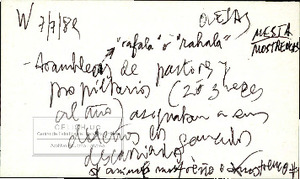 W 7/7/89 OVEJAS
MESTA
MOSTRENCAS
"rafala" o "rahala"
- Asambleas de pastores y
propietarios (2 o 3 veces
al año) asignaban a sus
dueños los ganados
descarriados
* animal mostreño o mostrenco *